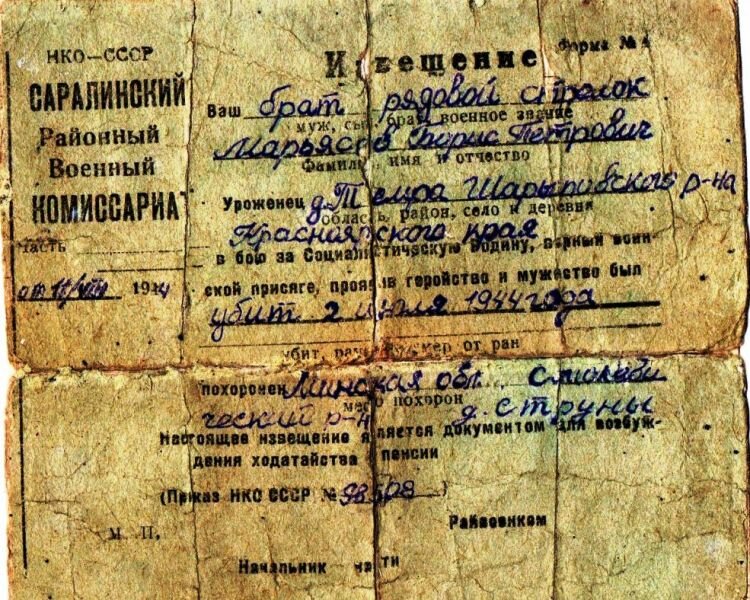 НКО—СССР
САРАЛИНСКИЙ
Районный
Военный
КОМИССАРИАТ
часть
от 1944
Форма № 4
Извещение
Ваш брат рядовой стрелок
муж, сын, брат, военное звание
Марьясов Борис Петрович
Фамилия, имя и отчество
Уроженец д. Темра Шарыповского р-на
область, район, село и деревня
Красноярского края
в бою за Социалистическую Родину, верный воин-
ской присяге, проявив геройство и мужество был
убит 2 июля 1944 года
убит, ранен, умер от ран
похоронен Минская обл. Смолеви
место похорон
ческий р-н д. Струны
Настоящее извещение является документом для возбуж-
дения ходатайства о пенсии
(Приказ НКО СССР №
М. П.
Райвоенком
Начальник части